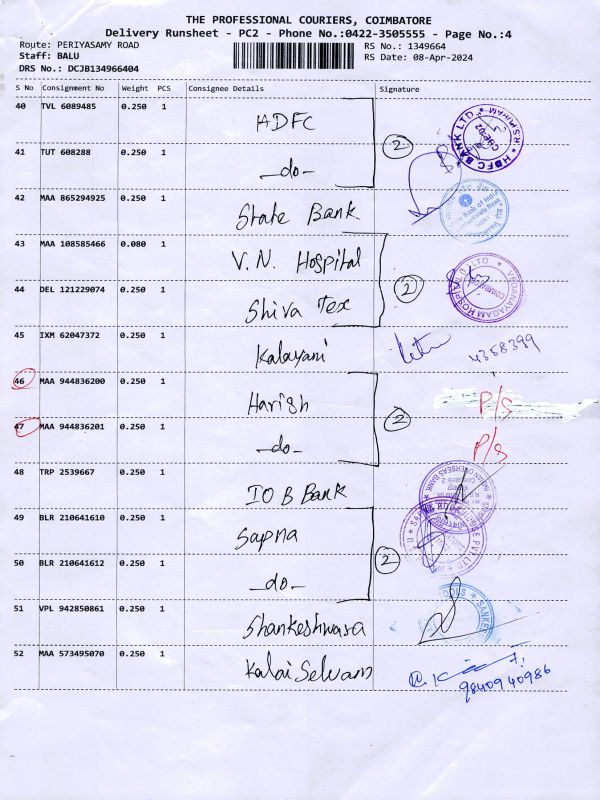 THE PROFESSIONAL COURIERS, COIMBATORE
Delivery Runsheet - PC2 - Phone No.:0422-3505555 - Page No.:4
Route: PERIYASAMY ROAD
RS No.: 1349664
Staff: BALU
RS Date: 08-Apr-2024
DRS No.: DCJB134966404
S No Consignment No Weight PCS Consignee Details Signature
40 TVL 6089485 0.250 1 HDFC
2
HDFC BANK LTD.
41 TUT 608288 0.250 1 -do-
42 MAA 865294925 0.250 1 State Bank
State Bank of India
43 MAA 108585466 0.080 1 V.N. Hospital
2
VEDANAYAGAM HOSPITAL
44 DEL 121229074 0.250 1 Shiva Tex
45 IXM 62047372 0.250 1 Kalayani
4358399
46 MAA 944836200 0.250 1 Harish P/S
2
47 MAA 944836201 0.250 1 -do- P/S
48 TRP 2539667 0.250 1 IOB Bank
INDIAN OVERSEAS BANK
49 BLR 210641610 0.250 1 Sapna
2
PVT LTD
50 BLR 210641612 0.250 1 -do-
51 VPL 942850861 0.250 1 Shankeshwara
52 MAA 573495070 0.250 1 Kalai Selvam
9840940986